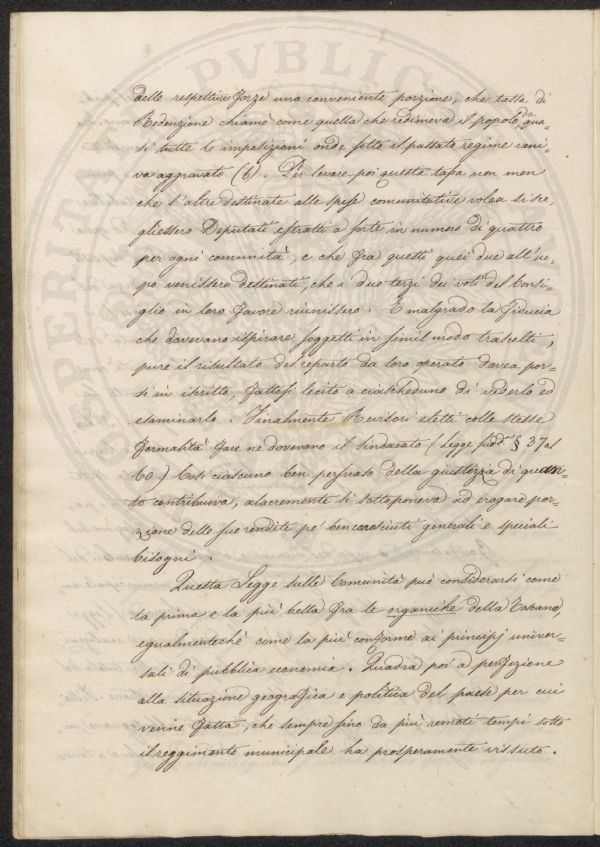 delle respettive forze una conveniente porzione, che tassa di
Redenzione chiamò come quella che redimeva il popolo da qua-
si tutte le imposizioni onde sotto il passato regime veni-
va aggravato (6). Per levare poi questa tassa non men
che l'altre destinate alle spese comunitative volea si sce-
gliessero Deputati estratti a sorte in numero di quattro
per ogni comunità, e che fra questi quei due all'uo-
po venissero destinati, che i due terzi dei voti del Consi-
glio in loro favore riunissero. E malgrado la fiducia
che dovevano ispirare soggetti in simil modo trascelti,
pure il risultato del reparto da loro operato dovea por-
si in iscritto, fattosi lecito a ciascheduno di vederlo ed
esaminarlo. Finalmente Revisori eletti colle stesse
formalità fare ne dovevano il sindacato (Legge sudᵃ § 37 al
60) Così ciascuno ben persuaso della giustezza di quan-
to contribuiva, alacremente si sottoponeva ad erogare por-
zione delle sue rendite pe' ben conosciuti generali e speciali
bisogni.
Questa Legge sulle Comunità può considerarsi come
la prima e la più bella fra le organiche della Toscana,
egualmentechè come la più conforme ai principj univer-
sali di pubblica economia. Quadra poi a perfezione
alla situazione geografica e politica del paese per cui
venne fatta, che sempre fino da più remoti tempi sotto
il reggimento municipale ha prosperamente vissuto.
PVBLIC